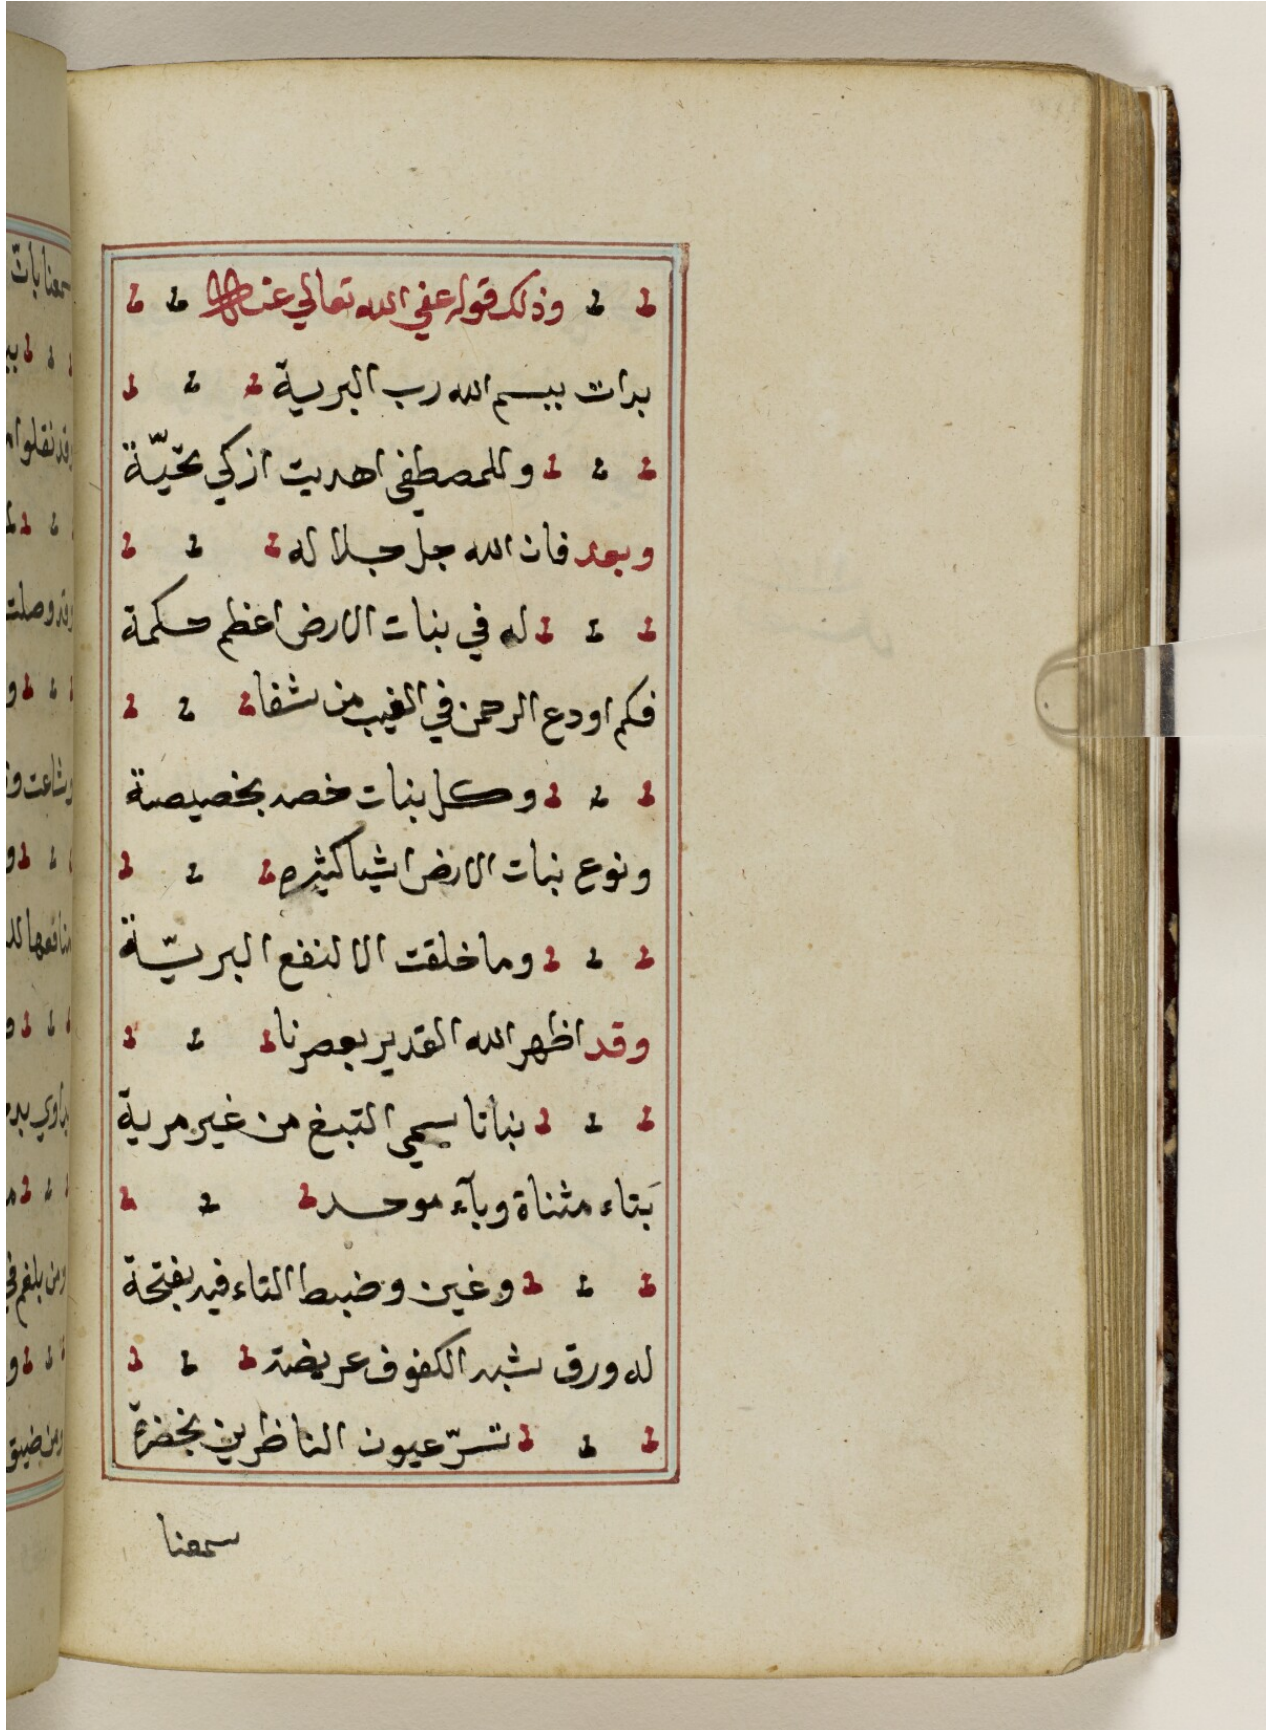 وذلك قوله عفي الله تعالي عنه
بدات ببسم الله رب البرية
وللمصطفي اهديت ازكي تحيّة
وبعد فان الله جل جلاله
له في نبات الارض اعظم حكمة
فكم اودع الرحمن في الغيب من شفا
وكل نبات خصه بخصيصة
ونوع نبات الارض اشيا كثيره
وما خلقت الا لنفع البريّة
وقد اظهر الله القدير بعصرنا
نباتا سمي التبغ من غير مرية
بَتاء مثناة وبآء موحد
وغين وضبط التاء فيه بفتحة
له ورق شبه الكفوف عريضة
تسرّ عيون الناظرين بخضرة
سمعنا